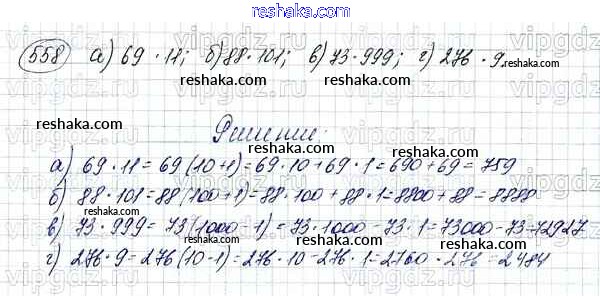 reshaka.com
558 а) 69 · 11; б) 88 · 101; в) 73 · 999; г) 276 · 9.
reshaka.com reshaka.com reshaka.com
reshaka.com
Решение:
reshaka.com reshaka.com
а) 69 · 11 = 69 (10 + 1) = 69 · 10 + 69 · 1 = 690 + 69 = 759
б) 88 · 101 = 88 (100 + 1) = 88 · 100 + 88 · 1 = 8800 + 88 = 8888
в) 73 · 999 = 73 (1000 - 1) = 73 · 1000 - 73 · 1 = 73000 - 73 = 72927
г) 276 · 9 = 276 (10 - 1) = 276 · 10 - 276 · 1 = 2760 - 276 = 2484
reshaka.com reshaka.com reshaka.com